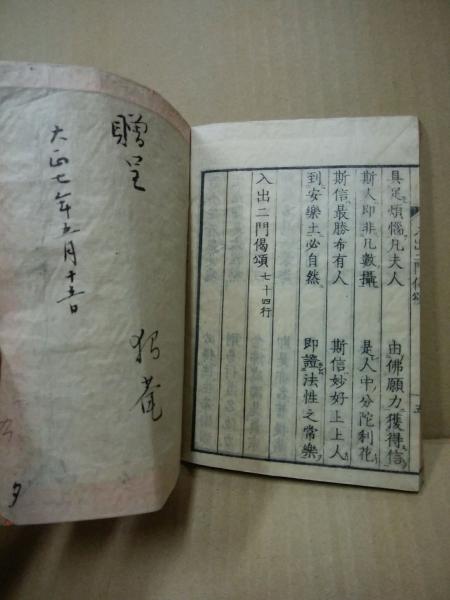 入出二門偈頌
五
具足煩惱凡夫人　由佛願力獲得信
斯人即非凡數攝　是人中分陀利花
斯信最勝希有人　斯信妙好上上人
到安樂土必自然　即證法性之常樂
入出二門偈頌 七十四行
贈呈
大正七年五月十五日